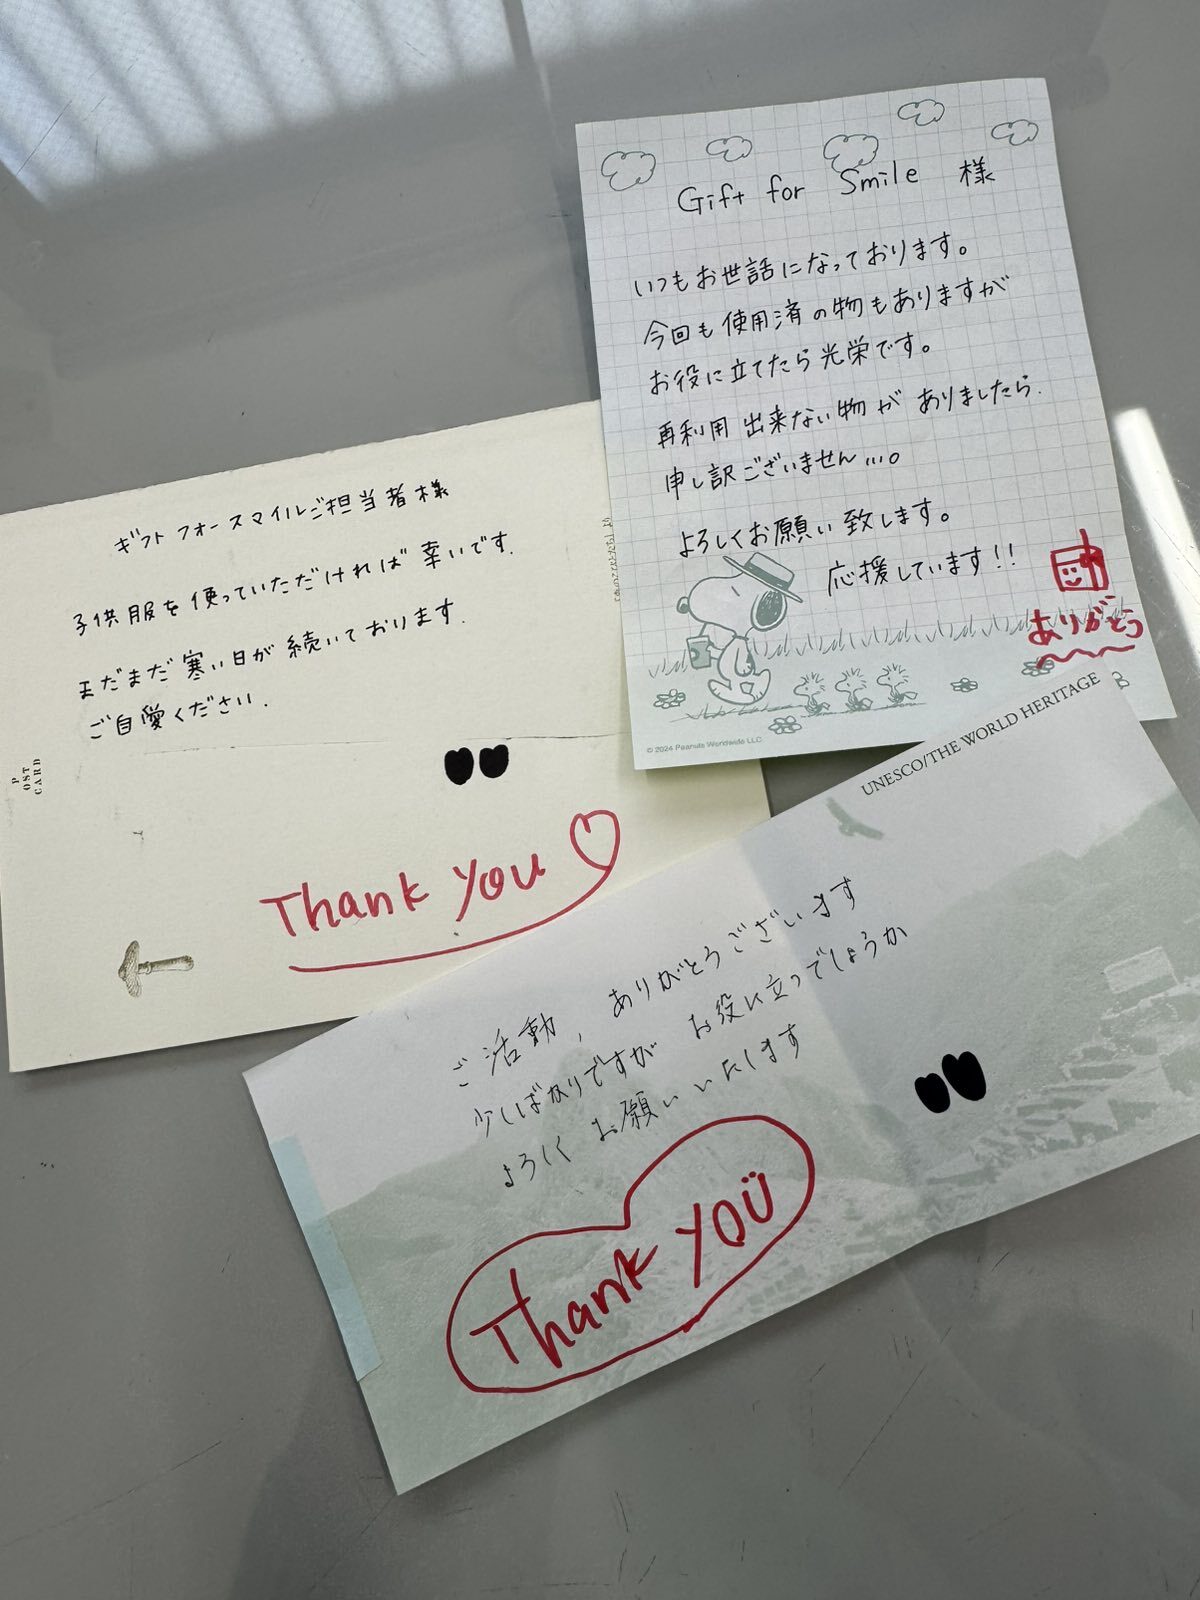 Gift for Smile 様
いつもお世話になっております。
今回も使用済の物もありますが
お役に立てたら光栄です。
再利用出来ない物がありましたら、
申し訳ございません…。
よろしくお願い致します。
応援しています!!
ありがとう
© 2024 Peanuts Worldwide LLC
ギフトフォースマイルご担当者様
子供服を使っていただければ幸いです.
まだまだ寒い日が続いております.
ご自愛ください.
P
OST
CARD
Thank you
UNESCO/THE WORLD HERITAGE
ご活動, ありがとうございます
少しばかりですが お役に立つでしょうか
よろしく お願いいたします
Thank YOU